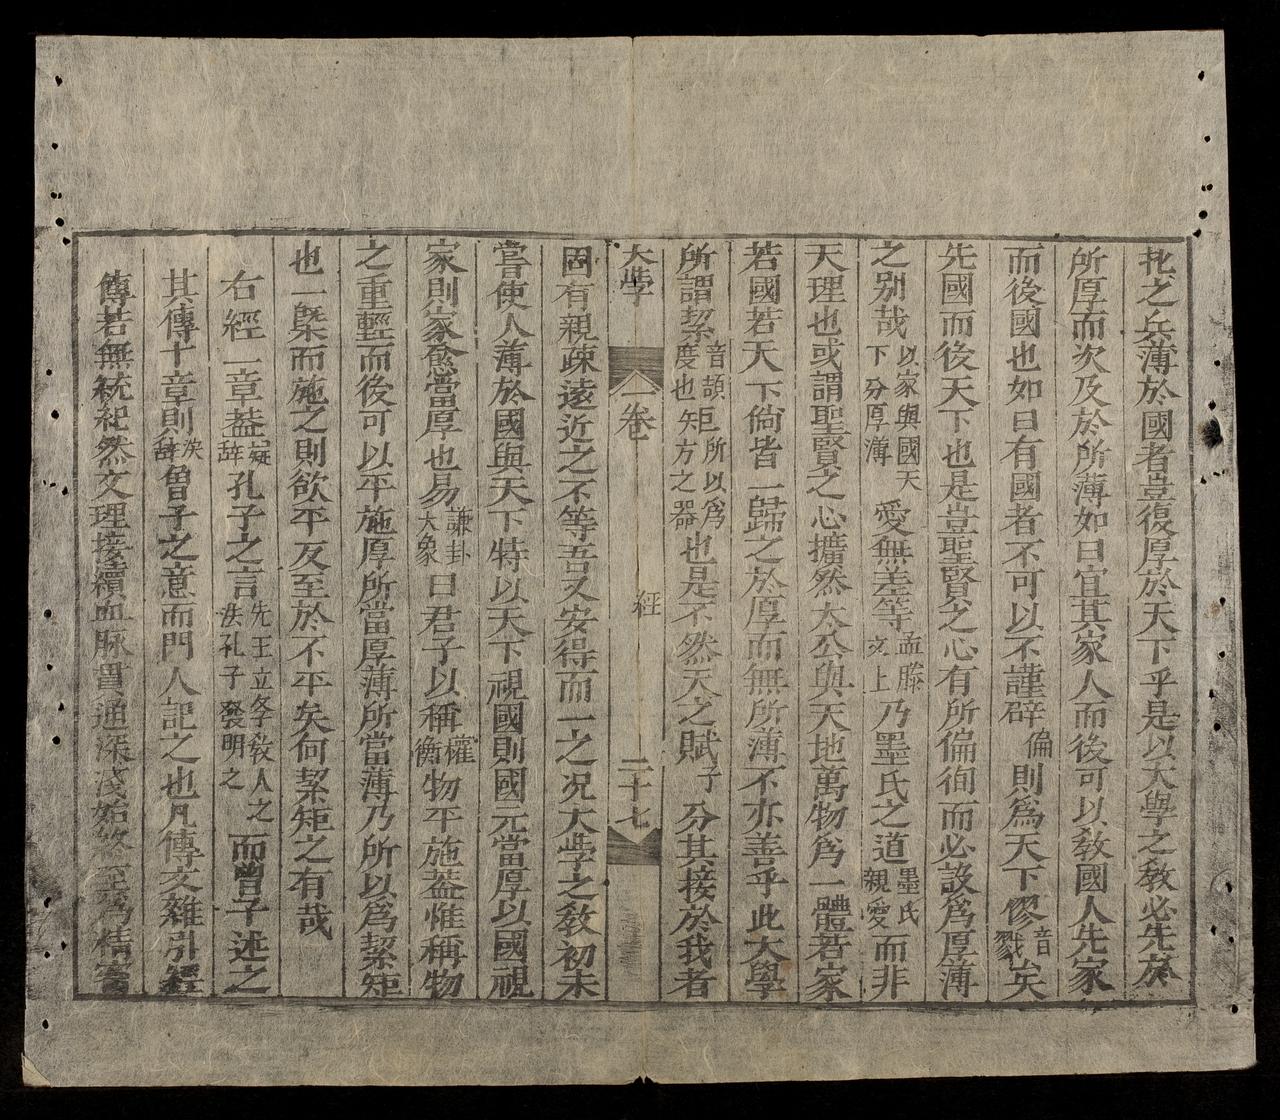 之丘薄於國者豈復厚於天下乎是以大學之教必先於
所厚而次及於所薄如曰宜其家人而後可以教國人先家
而後國也如曰有國者不可以不謹辟偏則爲天下僇音戮矣
先國而後天下也是豈聖賢之心有所偏徇而必設爲厚薄
之别哉以家與國天下分厚薄愛無差等孟滕文上乃墨氏之道墨氏親愛而非
天理也或謂聖賢之心擴然太公與天地萬物爲一體若家
若國若天下倘皆一歸之於厚而無所薄不亦善乎此大學
所謂絜音頡度也矩所以爲方之器也是不然天之賦予分其接於我者
大學 卷 經 二十七
固有親疎遠近之不等吾又安得而一之况大學之教初未
嘗使人薄於國與天下特以天下視國則國元當厚以國視
家則家愈當厚也易謙卦大象曰君子以稱權衡物平施蓋惟稱物
之重輕而後可以平施厚所當厚薄所當薄乃所以爲絜矩
也一槩而施之則欲平反至於不平矣何絜矩之有哉
右經一章蓋疑辭孔子之言先王立學教人之法孔子發明之而曾子述之
其傳十章則決辭曾子之意而門人記之也凡傳文雜引經
傳若無統紀然文理接續血脉貫通深淺始終至爲精密